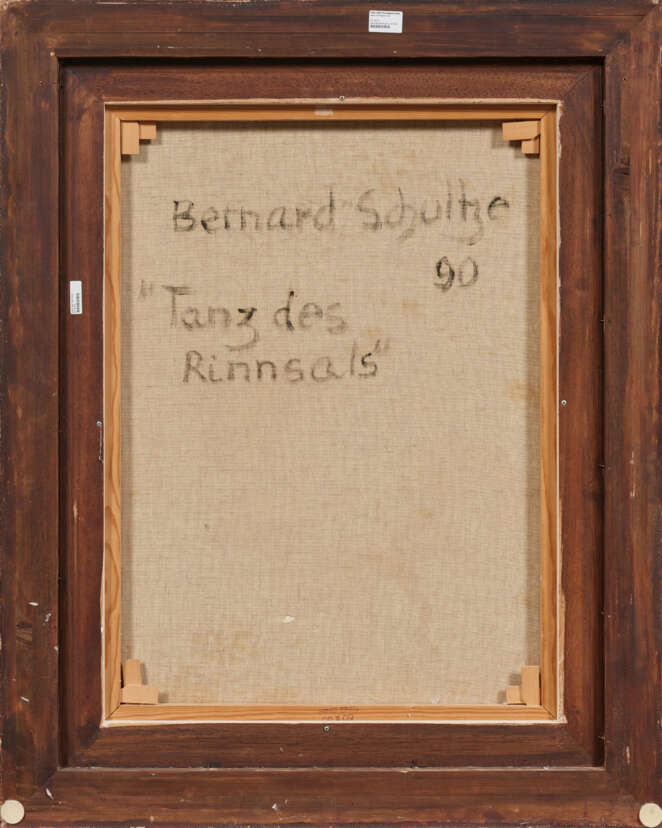 Bernard Schultze
90
"Tanz des
Rinnsals"